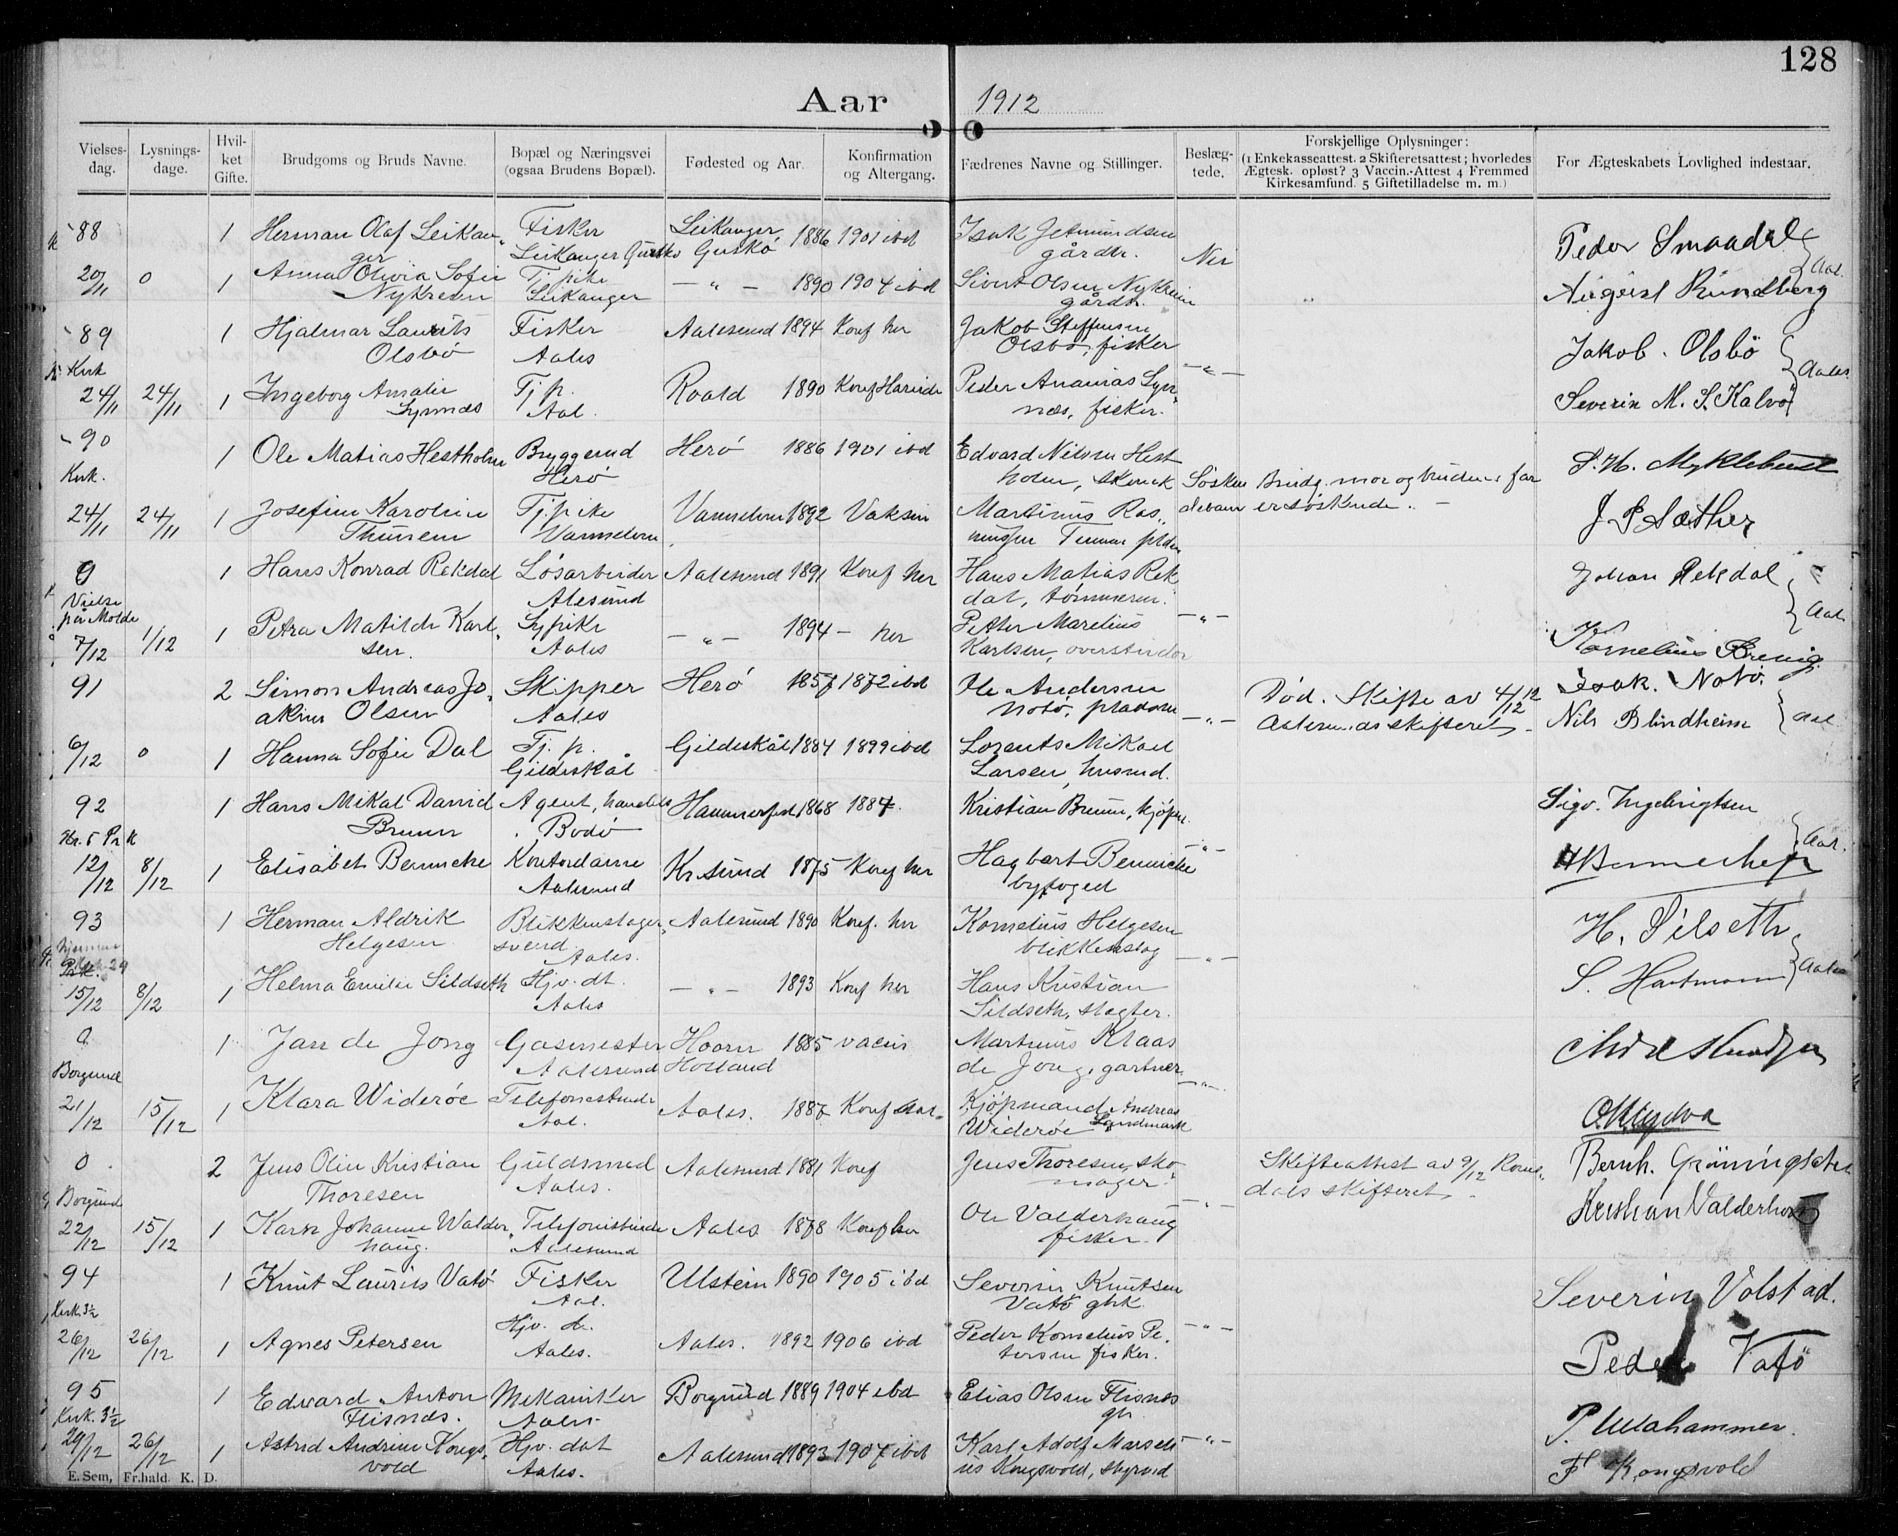 128
Aar 1912
Vielses-dag. Lysnings-dage. Hvil-ket Gifte. Brudgoms og Bruds Navne. Bopæl og Næringsvei (ogsaa Brudens Bopæl). Fødested og Aar. Konfirmation og Altergang. Fædrenes Navne og Stillinger. Beslæg-tede. Forskjellige Oplysninger: (1 Enkekasseattest. 2 Skifteretsattest; hvorledes Ægtesk. opløst? 3 Vaccin.-Attest 4 Fremmed Kirkesamfund. 5 Giftetilladelse m. m.) For Ægteskabets Lovlighed indestaar.
88 1 Herman Olaf Leikan- Fisker Leikanger 1886 1901 ibd Isak Jetmundsen Peder Smaadal
ger Leikanger Gurskø Gurskø gårdbr. Nei
20/11 0 1 Anna Olivia Sofie Tj. pike — " — 1890 1904 ibd Sivert Olsen Nykreim August Rundberg Aal.
Nykreim Leikanger gårdbr.
89 1 Hjalmar Laurits Fisker Aalesund 1894 Konf her Jakob Steffensen Jakob. Olsbö
Olsbö Aales Olsbö, fisker
Kirk — " — Aales.
24/11 24/11 1 Ingeborg Amalie Tj. p. Roald 1890 Konf Peder Ananias Syn- Severin M. S. Kalvö
Synnes Aal. nes, fisker.
90 1 Ole Matias Hestholm Bryggemd Herö 1886 1901 ibd Edvard Nilsen Hest- S. H. Myklebust
Kirk. Herö holm, Søsken Brudg. mor og brudens far
24/11 24/11 1 Josefine Karoline Tj. pike Vannelven 1892 Vaksin Martinus Ras- er söskende. J P Sæther
Thunem Vannelven mussen
0 1 Hans Konrad Rekdal Løsarbeider Aalesund 1891 Konf her Hans Matias Rek- Johan Rekdal
Vielse Alesund dal, tömmerm.
på Molde — " — Aal.
7/12 1/12 1 Petra Matilde Karl- Sypike — " — 1894 — her Petter Marelius Kornelius
sen Aales Karlsen,
91 2 Simon Andreas Jo- Skipper Herö 1857 1872 ibd Ole Andersen Död. Skifte av 4/12 12 Isak. Notö.
akim Olsen Aales Notö, pladsm — " — Aalesunds skifteret. Nils Blindheim Aal
6/12 0 1 Hanna Sofie Dal Tj. p. Gildeskål 1884 1899 ibd Lorents Mikael
Gildeskål Larsen, husmd.
92 1 Hans Mikal David Agent, handels Hammerfest 1868 1884. Kristian Bruun, kjöpm. Sigv. Ingebrigtsen
Bruun Bodö
12/12 8/12 1 Elisabet Bennecke Kontordame Kr.sund 1875 Konf her Hagbart Bennecke — " — Aal.
Aalesund byfoged
93 1 Herman Aldrik Blikkenslager- Aalesund 1890 Konf. her Kornelius Helgesen H. Silseth
Helgesen svend. Aales. blikkenslag — " —
15/12 8/12 1 Helma Emilie Sildseth Hjv. dt. — " — 1893 Konf her Hans Kristian S. Hartmann Aales
Aales Sildseth, slagter.
0 1 Jan de Jong Gasmester Hoorn 1885 vaccin Martinus Klaas
Borgund Aalesund Holland de Jong, gartner — " —
21/12 15/12 1 Klara Wideröe Telefonistinde Aales. 1887 Konf Aal. Kjöpmand Andreas
Aal. Wideröe Landmark
0 2 Jens Olin Kristian Guldsmed Aalesund 1881 Konf Jens Thoresen, sko- Skifteattest av 9/12 Roms- Bernh. Gröningsæter
Thoresen Aales. mager. dals skifteret.
Borgund — " —
22/12 15/12 1 Karn Johanne Walder- Telefonistinde Aales 1878 Konf her Ole Valderhaug Kristian Valderhaug
haug. Aalesund fisker.
94 1 Knut Laurits Vatö Fisker Ulstein 1890 1905 ibd Severin Knutsen Severin Volstad.
Aal. Vatö gbk.
Kirk. 3½ — " —
26/12 26/12 1 Agnes Petersen Hjv. d. Aales. 1892 1906 ibd Peder Kornelius Pe- Peder Vatö
Aales. tersen fisker.
95 1 Edward Anton Mekaniker Borgund 1889 1904 ibd Elias Olsen Flisnes
Kirk. 3½ Flisnes. Aales. gbr. P. Ullahammer.
29/12 26/12 1 Astrid Andrine Kongs- Hjv. dat Aalesund 1893 1907 ibd Karl Adolf Marseli- — " — F Kongsvold
vold Aales. us Kongsvold, styrmd
E. Sem, Fr.hald. K. D.